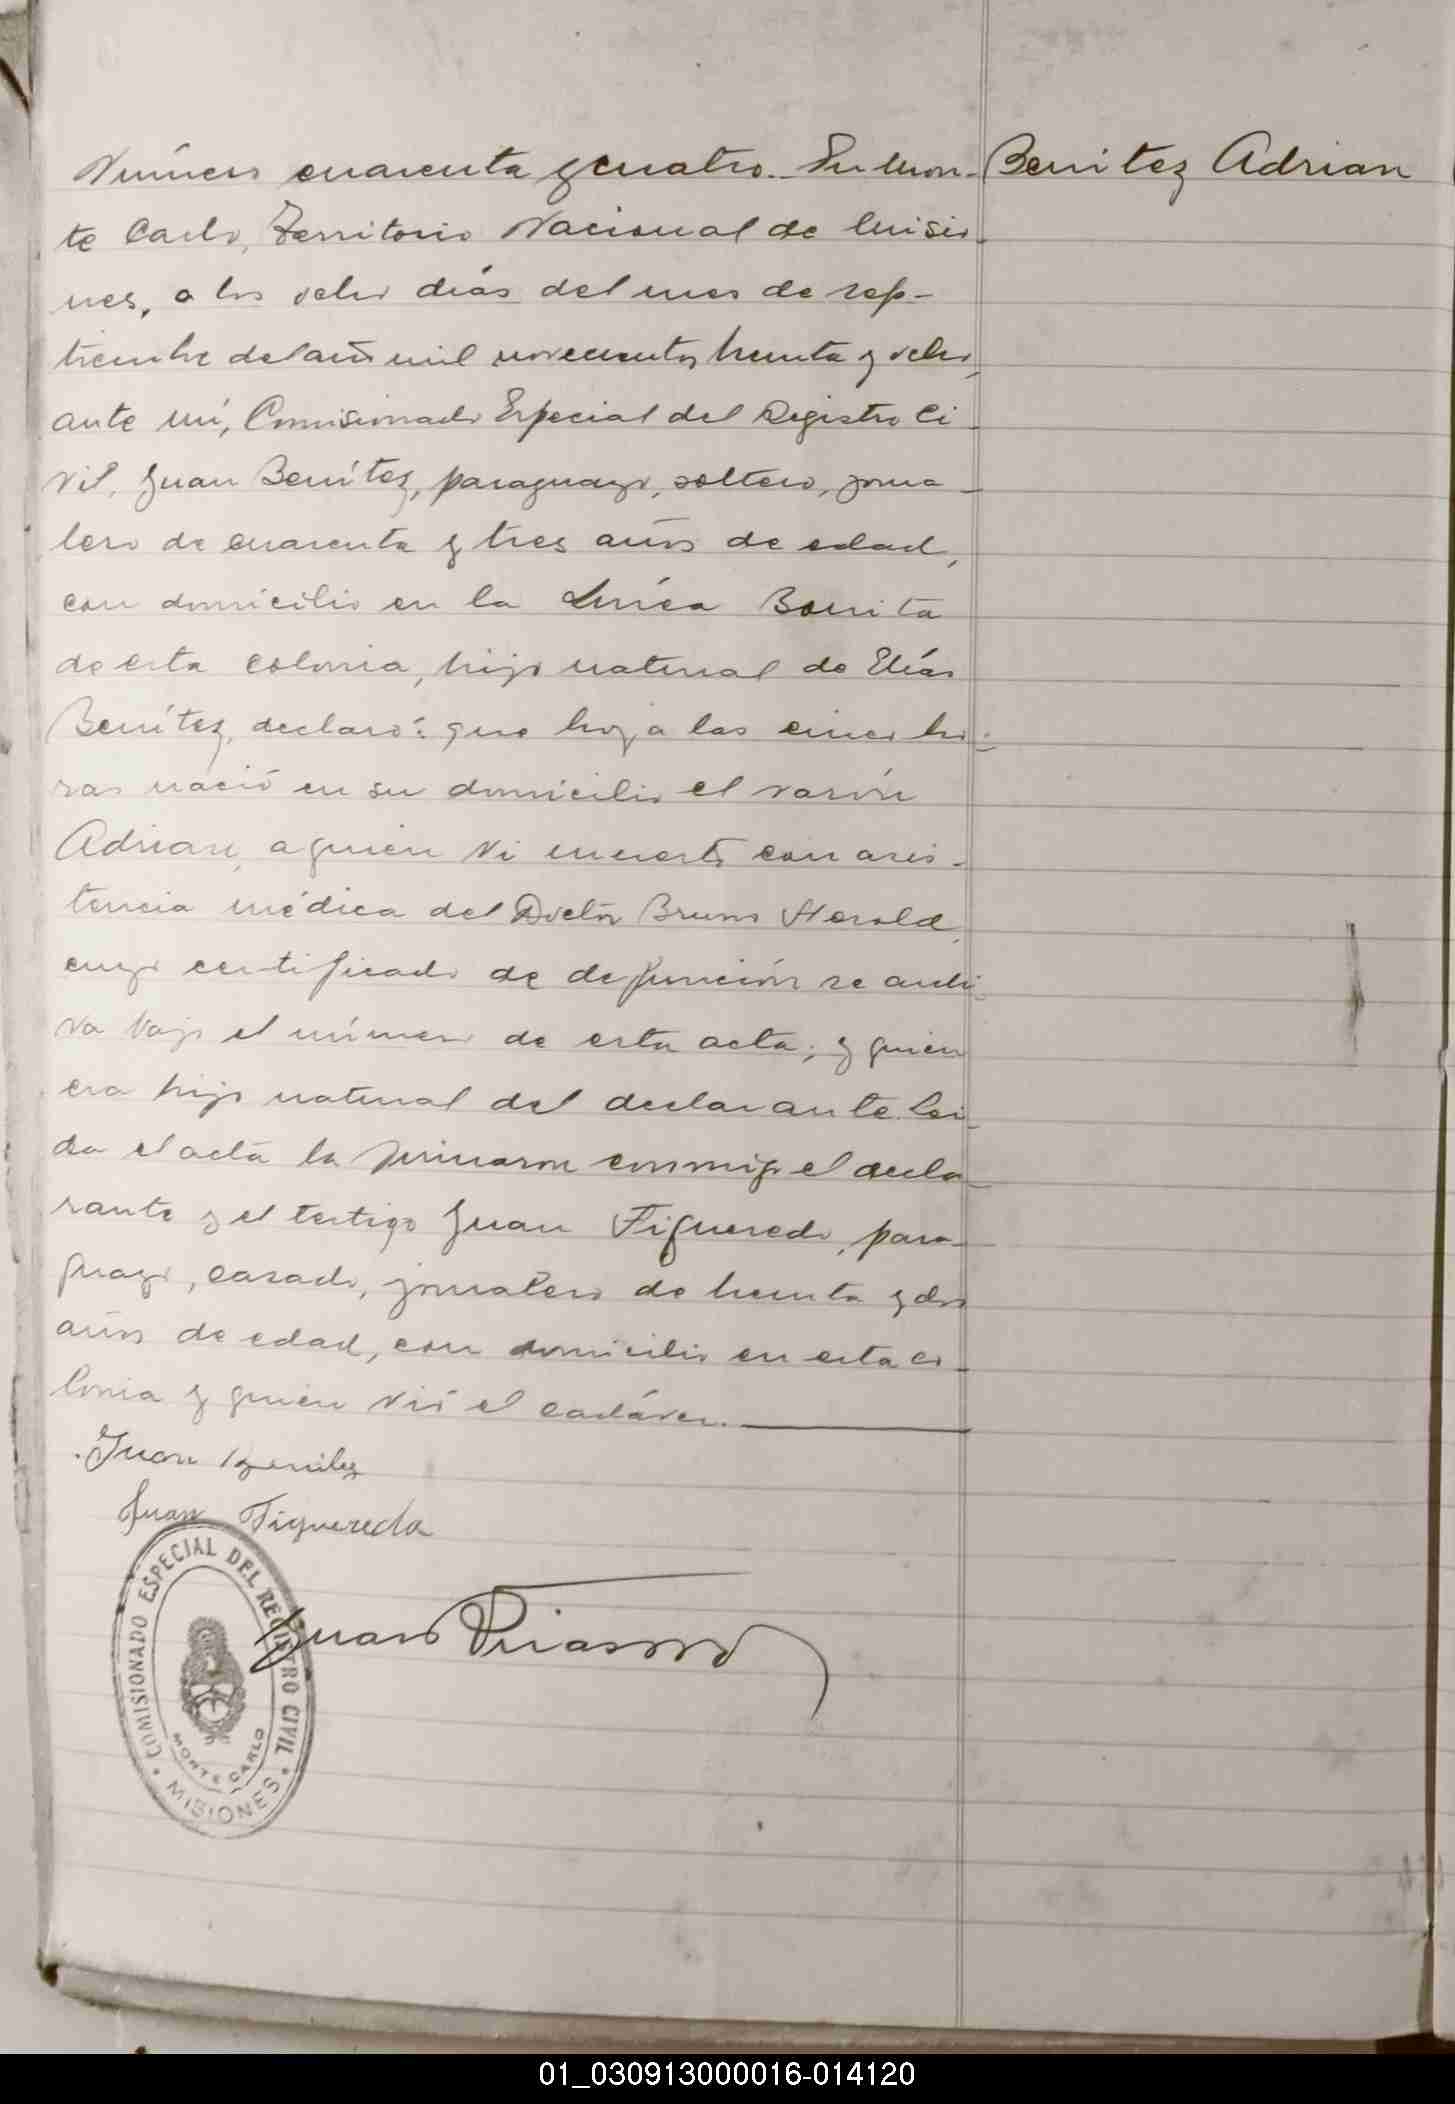 Número cuarenta y cuatro. En Mon-
Benitez Adrian
te Carlo, Territorio Nacional de Misio-
nes, a los ocho días del mes de sep-
tiembre del año mil novecientos treinta y ocho,
ante mí, Comisionado Especial del Registro Ci-
vil, Juan Benítez, paraguayo, soltero, jorna-
lero de cuarenta y tres años de edad,
con domicilio en la Línea Bonita
de esta colonia, hijo natural de Elías
Benítez, declaró: que hoy a las cinco ho-
ras nació en su domicilio el varón
Adrian, a quien vi muerto con asis-
tencia médica del Doctor Bruno Herold,
cuyo certificado de defunción se archi-
va bajo el número de esta acta; y quien
era hijo natural del declarante. Leí-
da el acta la firmaron conmigo el decla-
rante y el testigo Juan Figueredo, para-
guayo, casado, jornalero de treinta y dos
años de edad, con domicilio en esta co-
lonia y quien vió el cadáver.
Juan Benitez
Juan Figueredo
Juan
COMISIONADO ESPECIAL DEL REGISTRO CIVIL
MONTE CARLO
MISIONES
01_030913000016-014120